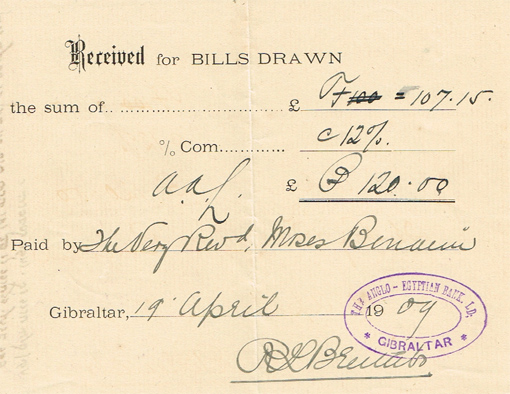 Received for BILLS DRAWN
the sum of £ F 100 = 107.15.
% Com. c 12%.
£ P 120.00
Paid by The Very Revd. Moses Benaim
Gibraltar, 19 April 1909
THE ANGLO-EGYPTIAN BANK, LD.
* GIBRALTAR *